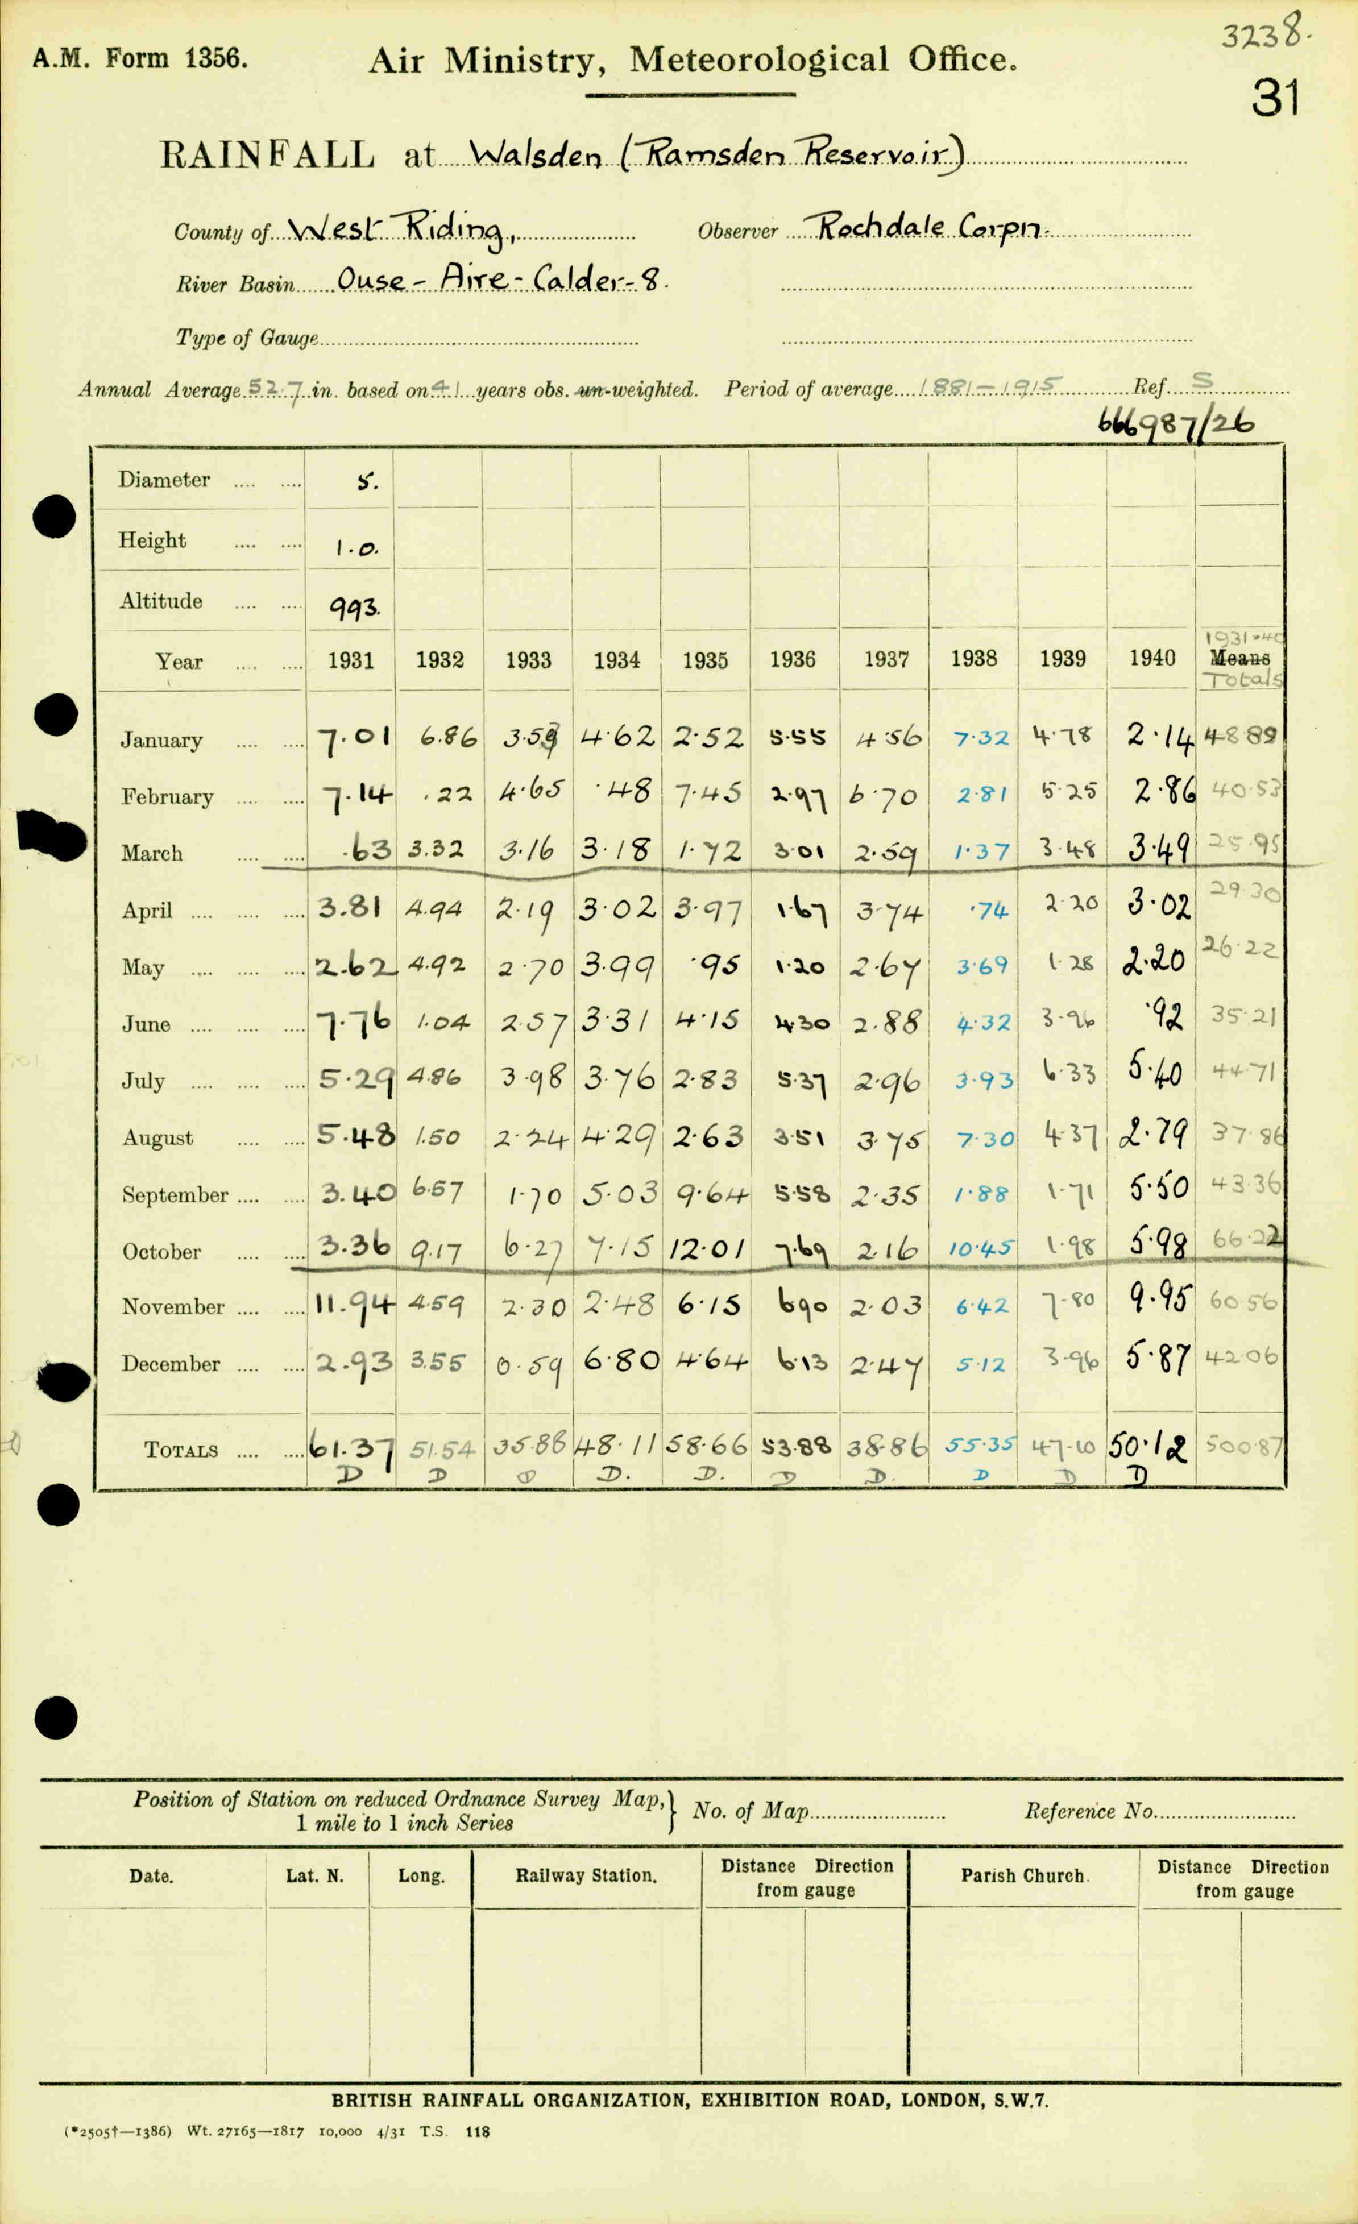 3238.
A.M. Form 1356.
Air Ministry, Meteorological Office.
31
RAINFALL at Walsden (Ramsden Reservoir)
County of West Riding, Observer Rochdale Corpn.
River Basin Ouse - Aire - Calder - 8.
Type of Gauge
Annual Average 52.7 in. based on 41 years obs. un-weighted. Period of average 1881-1915 Ref. S
666987/26
Diameter 5.
Height 1.0.
Altitude 993.
1931-40
Year 1931 1932 1933 1934 1935 1936 1937 1938 1939 1940 Means
Totals
January 7.01 6.86 3.53 4.62 2.52 5.55 4.56 7.32 4.78 2.14 48.89
February 7.14 .22 4.65 .48 7.45 2.97 6.70 2.81 5.25 2.86 40.53
March .63 3.32 3.16 3.18 1.72 3.01 2.59 1.37 3.48 3.49 25.95
April 3.81 4.94 2.19 3.02 3.97 1.67 3.74 .74 2.20 3.02 29.30
May 2.62 4.92 2.70 3.99 .95 1.20 2.67 3.69 1.28 2.20 26.22
June 7.76 1.04 2.57 3.31 4.15 4.30 2.88 4.32 3.96 .92 35.21
July 5.29 4.86 3.98 3.76 2.83 5.37 2.96 3.93 6.33 5.40 44.71
August 5.48 1.50 2.24 4.29 2.63 3.51 3.75 7.30 4.37 2.79 37.86
September 3.40 6.57 1.70 5.03 9.64 5.58 2.35 1.88 1.71 5.50 43.36
October 3.36 9.17 6.27 7.15 12.01 7.69 2.16 10.45 1.98 5.98 66.22
November 11.94 4.59 2.30 2.48 6.15 6.90 2.03 6.42 7.80 9.95 60.56
December 2.93 3.55 0.59 6.80 4.64 6.13 2.47 5.12 3.96 5.87 42.06
TOTALS 61.37 51.54 35.88 48.11 58.66 53.88 38.86 55.35 47.10 50.12 500.87
D D D D. D. D D. D D D
Position of Station on reduced Ordnance Survey Map, No. of Map Reference No.
1 mile to 1 inch Series
Date. Lat. N. Long. Railway Station. Distance Direction from gauge Parish Church. Distance Direction from gauge
BRITISH RAINFALL ORGANIZATION, EXHIBITION ROAD, LONDON, S.W.7.
(*2505†—1386) Wt. 27165—1817 10,000 4/31 T.S. 118